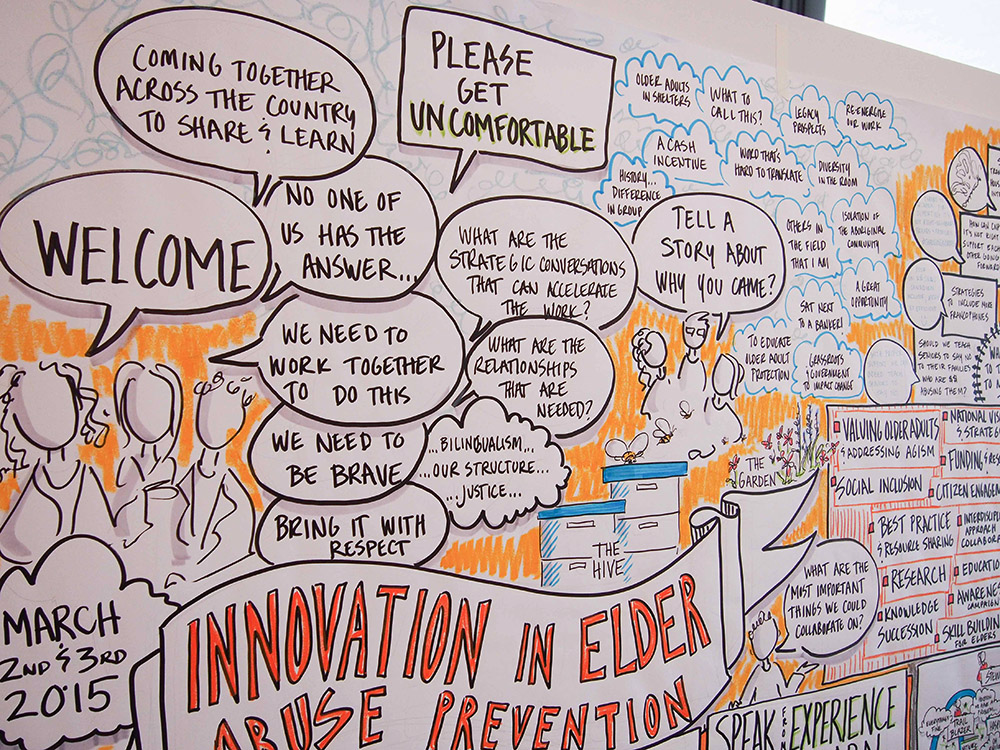 COMING TOGETHER
ACROSS THE COUNTRY
TO SHARE & LEARN
PLEASE
GET
UNCOMFORTABLE
OLDER ADULTS
IN SHELTERS
WHAT TO
CALL THIS?
LEGACY
PROSPECTS
RE-ENERGIZE
OUR WORK
A CASH
INCENTIVE
WORD THAT'S
HARD TO TRANSLATE
DIVERSITY
IN THE ROOM
HISTORY...
DIFFERENCE
IN GROUP
OTHERS IN
THE FIELD
THAT I AM
ISOLATION OF
THE ABORIGINAL
COMMUNITY
SAT NEXT
TO A BANKER!
A GREAT
OPPORTUNITY
TO EDUCATE
OLDER ADULT
PROTECTION
GRASSROOTS
& GOVERNMENT
TO IMPACT CHANGE
WELCOME
NO ONE OF
US HAS THE
ANSWER...
WHAT ARE THE
STRATEGIC CONVERSATIONS
THAT CAN ACCELERATE
THE WORK?
TELL A
STORY ABOUT
WHY YOU CAME?
WE NEED TO
WORK TOGETHER
TO DO THIS
WHAT ARE THE
RELATIONSHIPS
THAT ARE
NEEDED?
WE NEED TO
BE BRAVE
...BILINGUALISM...
...OUR STRUCTURE...
...JUSTICE...
BRING IT WITH
RESPECT
THE
HIVE
THE
GARDEN
HOW CAN
IT'S NOT RIGHT
SUPPORT EACH
OTHER GOING
FORWARD
STRATEGIES
TO INCLUDE MORE
FRANCOPHONES
SHOULD WE TEACH
SENIORS TO SAY NO
TO THEIR FAMILIES
WHO ARE
ABUSING THEM?
VALUING OLDER ADULTS
& ADDRESSING AGISM
SOCIAL INCLUSION
BEST PRACTICE
& RESOURCE SHARING
RESEARCH
KNOWLEDGE
SUCCESSION
NATIONAL
&
FUNDING &
CITIZEN
APPROACH
SKILL BUILDING
FOR ELDERS
WHAT ARE THE
MOST IMPORTANT
THINGS WE COULD
COLLABORATE ON?
MARCH
2ND & 3RD
2015
INNOVATION IN ELDER
ABUSE PREVENTION
SPEAK FROM EXPERIENCE
TRAIL
BLAZER